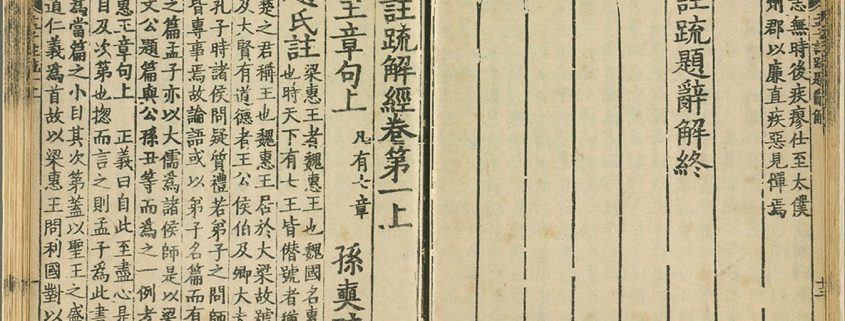 志無時後疾瘳仕至太僕
州郡以廉直疾惡見憚焉
註疏題辭解終
註疏解經卷第一上
王章句上 凡有七章 孫奭
氏註 梁惠王者魏惠王也魏國名惠
也時天下有七王皆僭號者猶
楚之君稱王也魏惠王居於大梁故號
及大賢有道德者王公侯伯及卿大夫
孔子時諸侯問疑質禮若弟子之問師
皆專事焉故論語或以弟子名篇而有
之篇孟子亦以大儒爲諸侯師是以梁
文公題篇與公孫丑等而爲之一例者
惠王章句上 正義曰自此至盡心是
目及次第也揔而言之則孟子爲此書
爲當篇之小目其次第蓋以聖王之盛
道仁義爲首故以梁惠王問利國對以